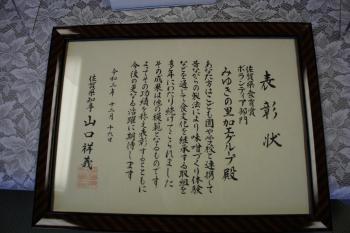 表彰状
佐賀県食育賞
ボランティア部門
みゆきの里加工グループ殿
あなた方はこども園や学校と連携して
昔ながらの製法により味噌づくり体験
などを通して食文化を継承する取組を
多年にわたり続けてこられました
その成果は他の模範となるものです
よってその功績を称え表彰するとともに
今後の更なる活躍に期待します
令和三年十二月十六日
佐賀県知事 山口祥義